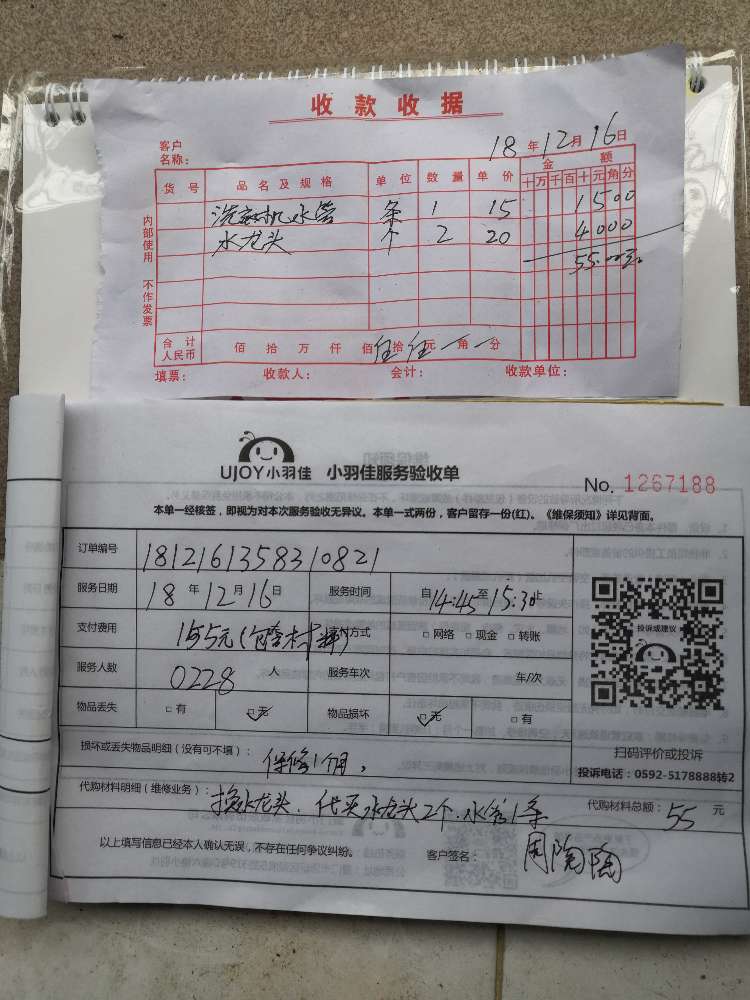 收款收据
客户
名称：
18年12月16日
货号 品名及规格 单位 数量 单价 金额
十万千百十元角分
洗衣机水管 条 1 15 1500
水龙头 个 2 20 4000
55.00元
内部使用 不作发票
合计
人民币 佰拾万仟佰伍拾伍元角分
填票： 收款人： 会计： 收款单位：
UJOY小羽佳 小羽佳服务验收单
No. 1267188
本单一经核签，即视为对本次服务验收无异议。本单一式两份，客户留存一份(红)。《维保须知》详见背面。
订单编号 1812161358310821
服务日期 18年12月16日 服务时间 自14:45至15:30止
支付费用 155元(包含材料) 付方式 □网络 □现金 □转账
投诉或建议
服务人数 0228人 服务车次 车/次
物品丢失 □有 □无 物品损坏 □无 □有
扫码评价或投诉
损坏或丢失物品明细（没有可不填）： 保修1个月。
投诉电话：0592-5178888转2
代购材料明细（维修业务）： 换水龙头、代买水龙头2个.水管1条 代购材料总额：55元
以上填写信息已经本人确认无误，不存在任何争议纠纷。 客户签名： 周陶陶